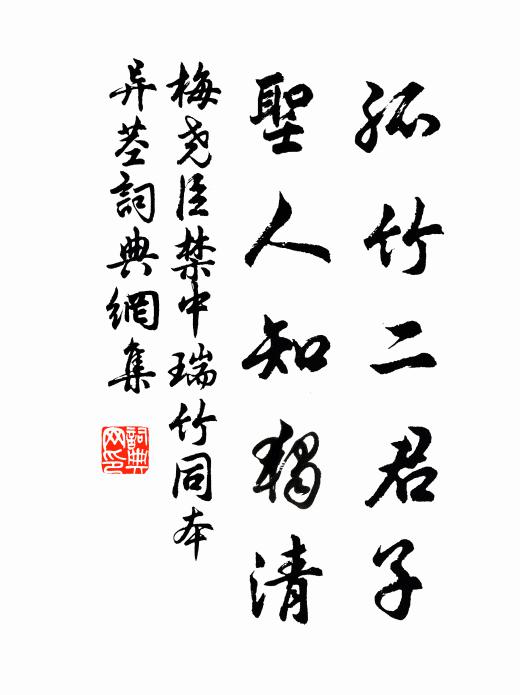 孤竹二君子
聖人知獨清
梅尧臣禁中瑞竹同本
异茎詞典網集
詞典网印